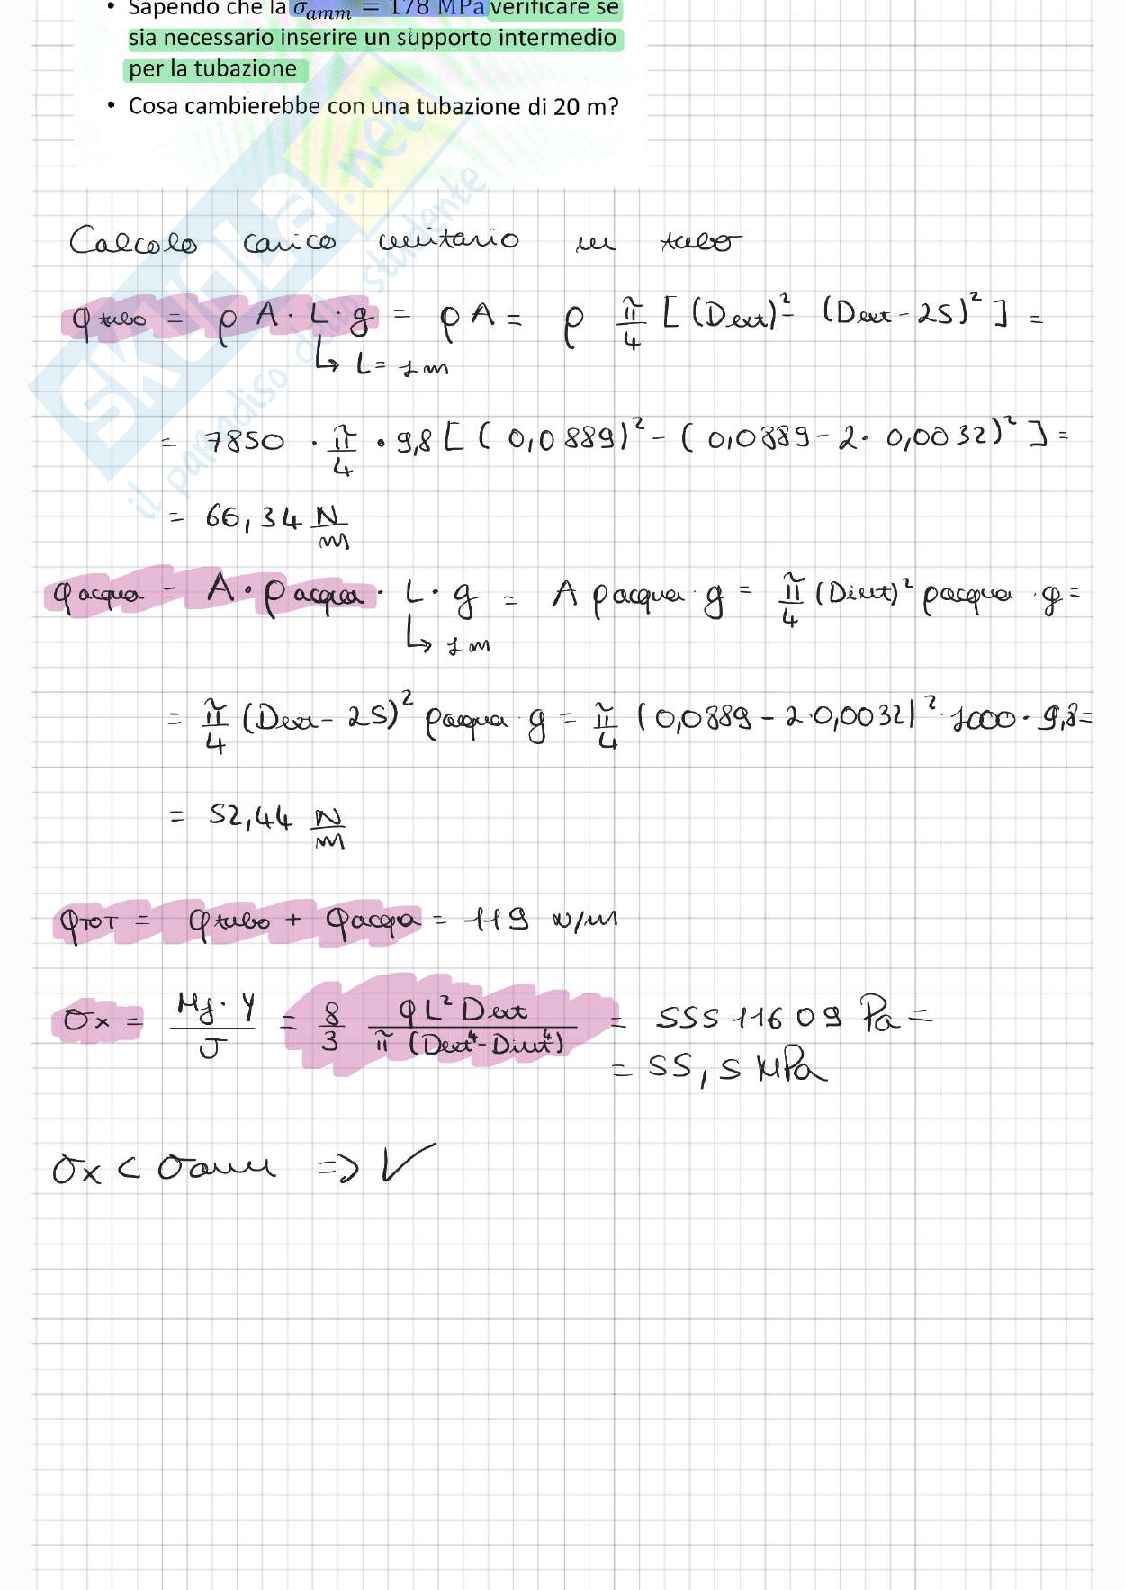 • Sapendo che la σamm = 178 MPa verificare se
sia necessario inserire un supporto intermedio
per la tubazione
• Cosa cambierebbe con una tubazione di 20 m?
SKUOLA.net
il paradiso dello studente
Calcolo carico unitario su tubo
q tubo = ρ A · L · g = ρ A = ρ π/4 [ (Dext)² - (Dext - 2S)² ] =
↳ L = 1 m
= 7850 · π/4 · 9,8 [ ( 0,0889)² - ( 0,0889 - 2 · 0,0032)² ] =
= 66,34 N/m
q acqua = A · ρ acqua · L · g = A ρ acqua · g = π/4 (Dint)² ρacqua · g =
↳ 1 m
= π/4 (Dext - 2S)² ρacqua · g = π/4 (0,0889 - 2·0,0032)² · 1000 · 9,8 =
= 52,44 N/m
qTOT = q tubo + q acqa = 119 N/m
σx = Mf · Y / J = 8/3 qL² Dext / π (Dext⁴ - Dint⁴) = 55511609 Pa =
= 55,5 MPa
σx < σamm => V